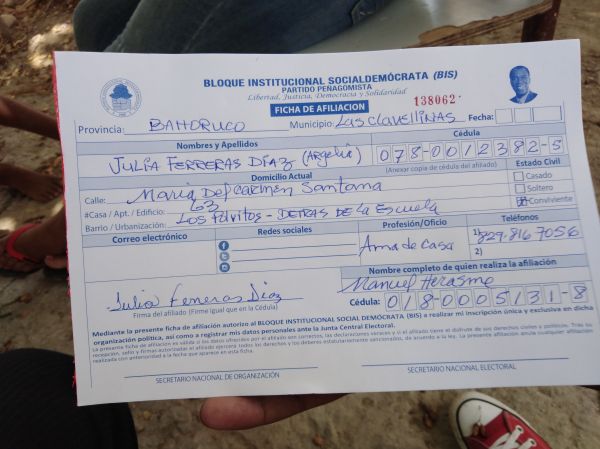 BLOQUE INSTITUCIONAL SOCIALDEMÓCRATA (BIS)
PARTIDO PEÑAGOMISTA
Libertad, Justicia, Democracia y Solidaridad
FICHA DE AFILIACION
138062
Provincia: BAHORUCO Municipio: Las Clavellinas Fecha:
Nombres y Apellidos Cédula
JULIA FERRERAS DÍAZ (Argelia) 078-0012382-5
(Anexar copia de cédula del afiliado)
Domicilio Actual Estado Civil
Calle: Maria Del Carmen Santana Casado
#Casa / Apt. / Edificio: 63 Soltero
Barrio / Urbanización: Los Polvitos - DETRAS DE La Escuela Conviviente
Correo electrónico Redes sociales Profesión/Oficio Teléfonos
Ama de Casa 1) 829-816 7056
2)
Nombre completo de quien realiza la afiliación
Manuel Herasme
Julia Ferreras Diaz Cédula: 018-0005131-8
Firma del afiliado (Firme igual que en la Cédula)
Mediante la presente ficha de afiliación autorizo al BLOQUE INSTITUCIONAL SOCIAL DEMÓCRATA (BIS) a realizar mi inscripción única y exclusiva en dicha
organización política, así como a registrar mis datos personales ante la Junta Central Electoral.
SECRETARIO NACIONAL DE ORGANIZACIÓN SECRETARIO NACIONAL ELECTORAL